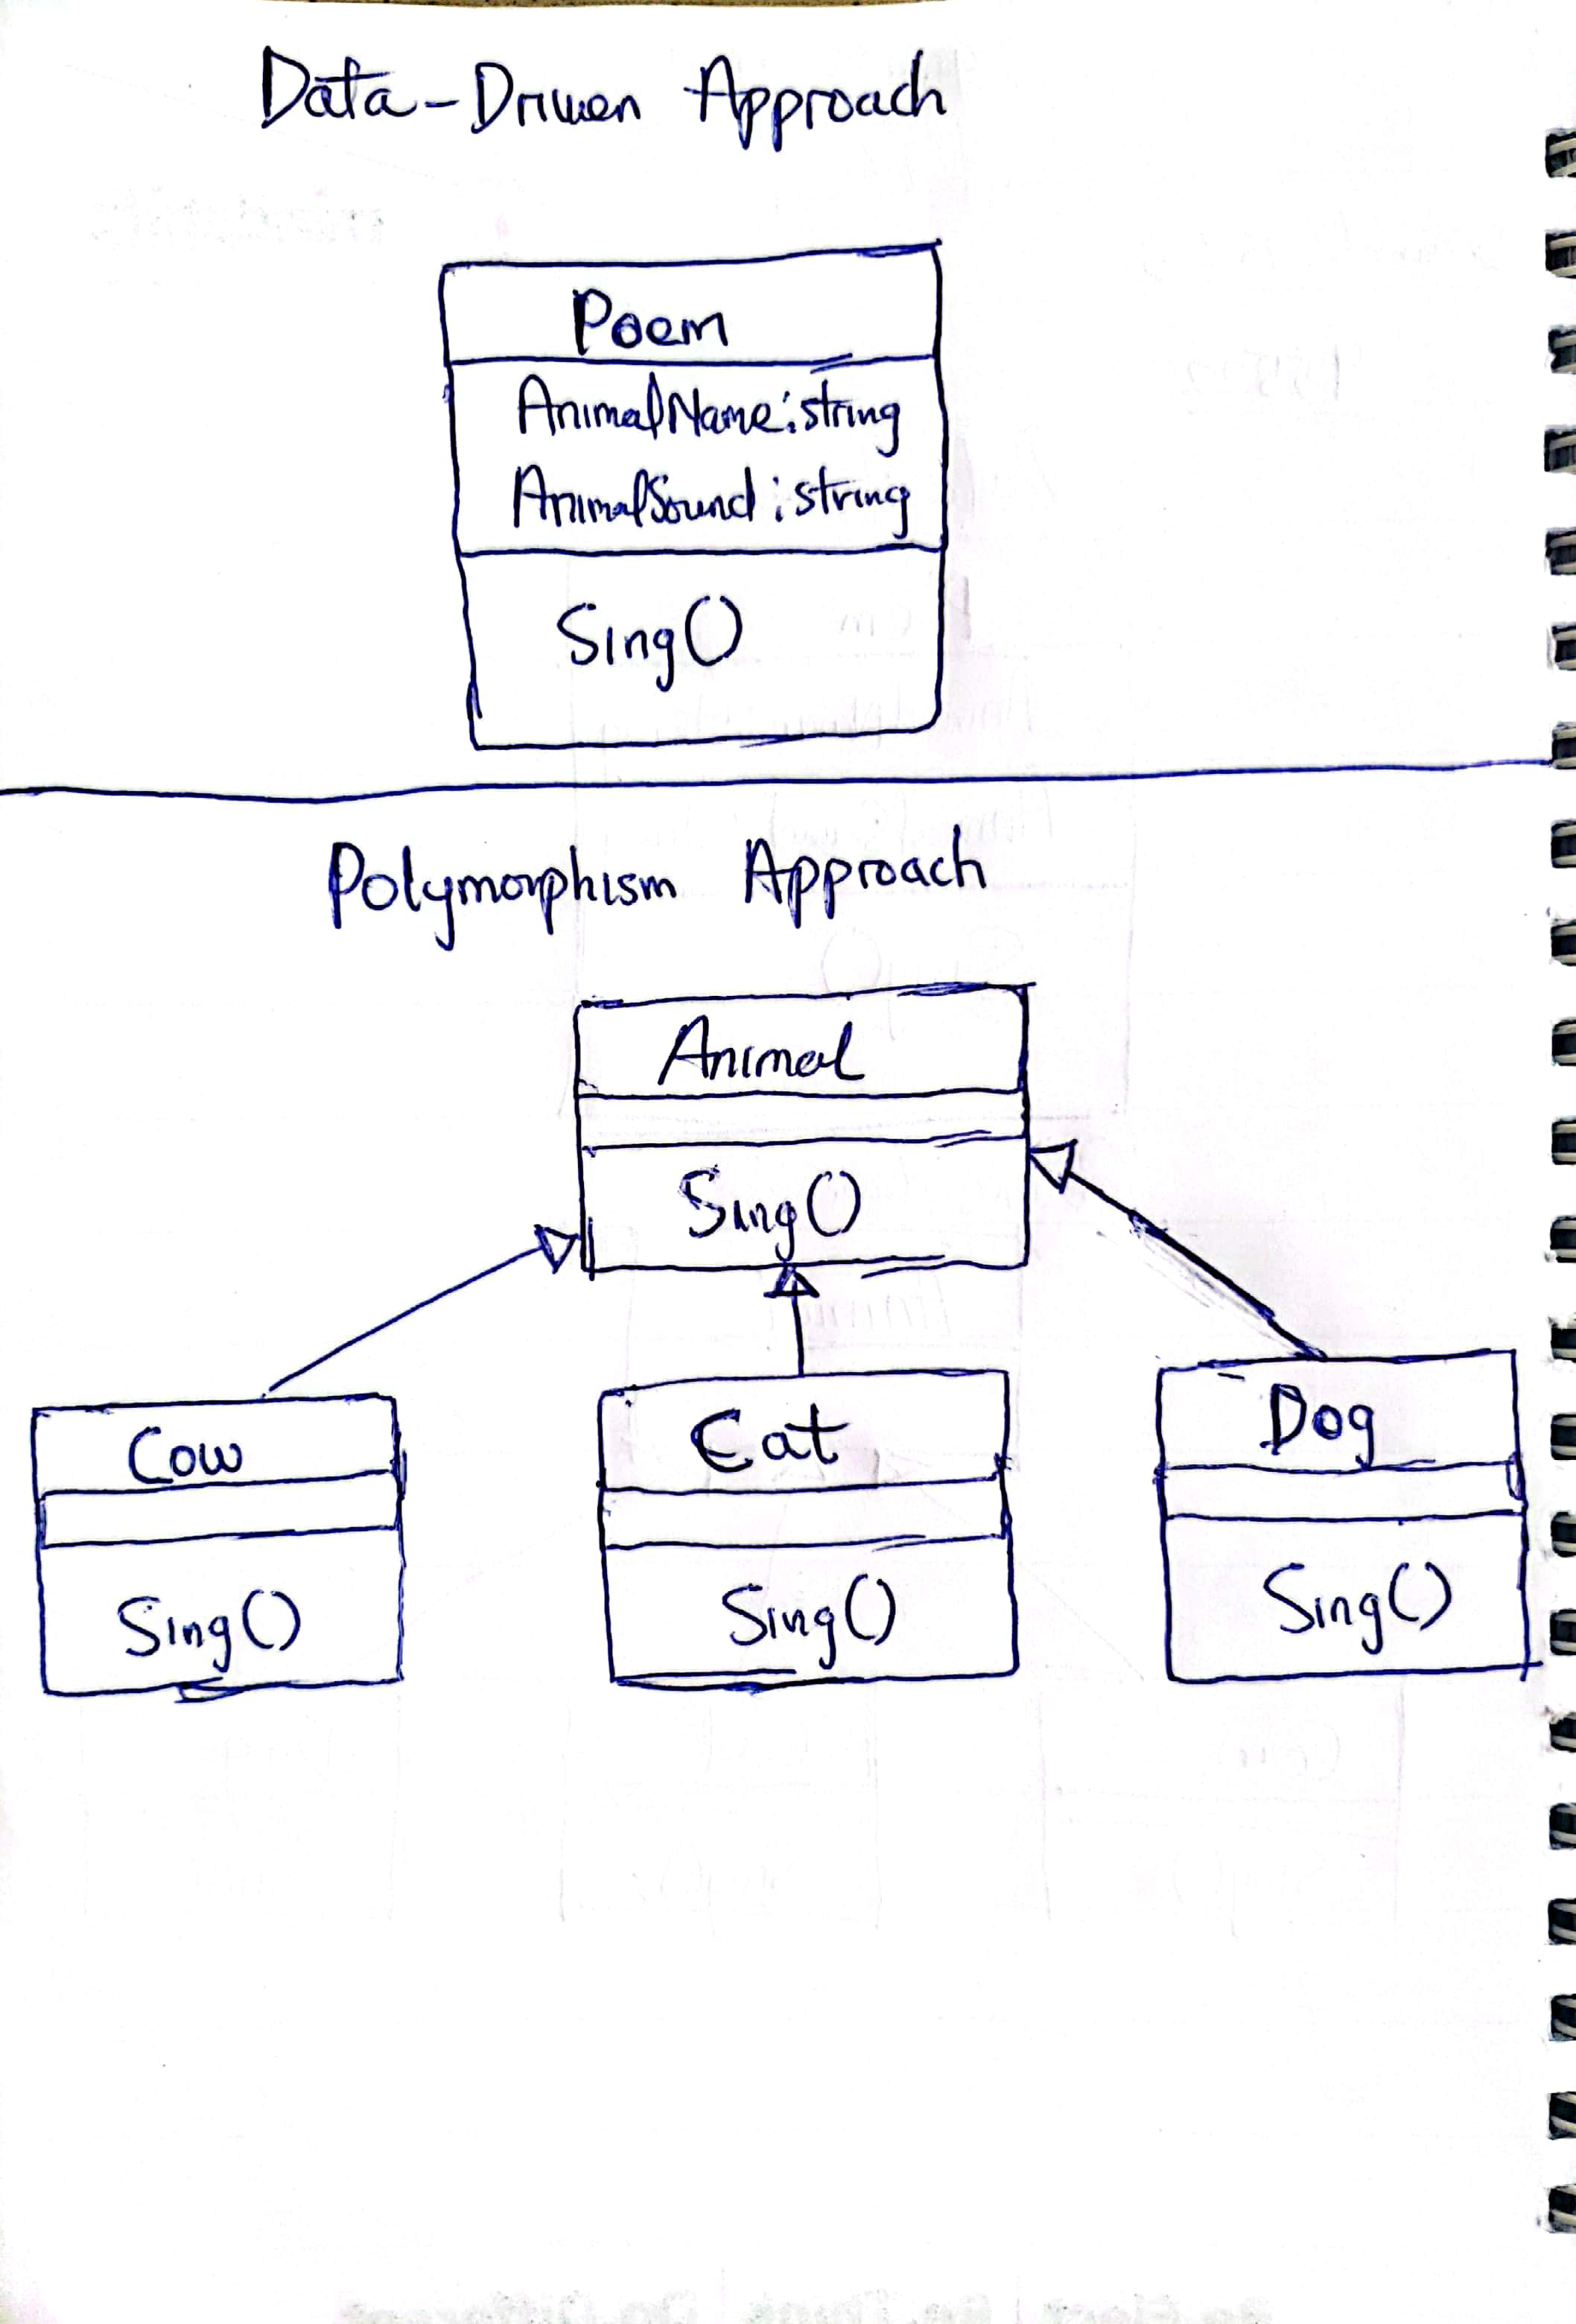 Data-Driven Approach
Poem
AnimalName:string
AnimalSound:string
Sing()
Polymorphism Approach
Animal
Sing()
Cow
Sing()
Cat
Sing()
Dog
Sing()